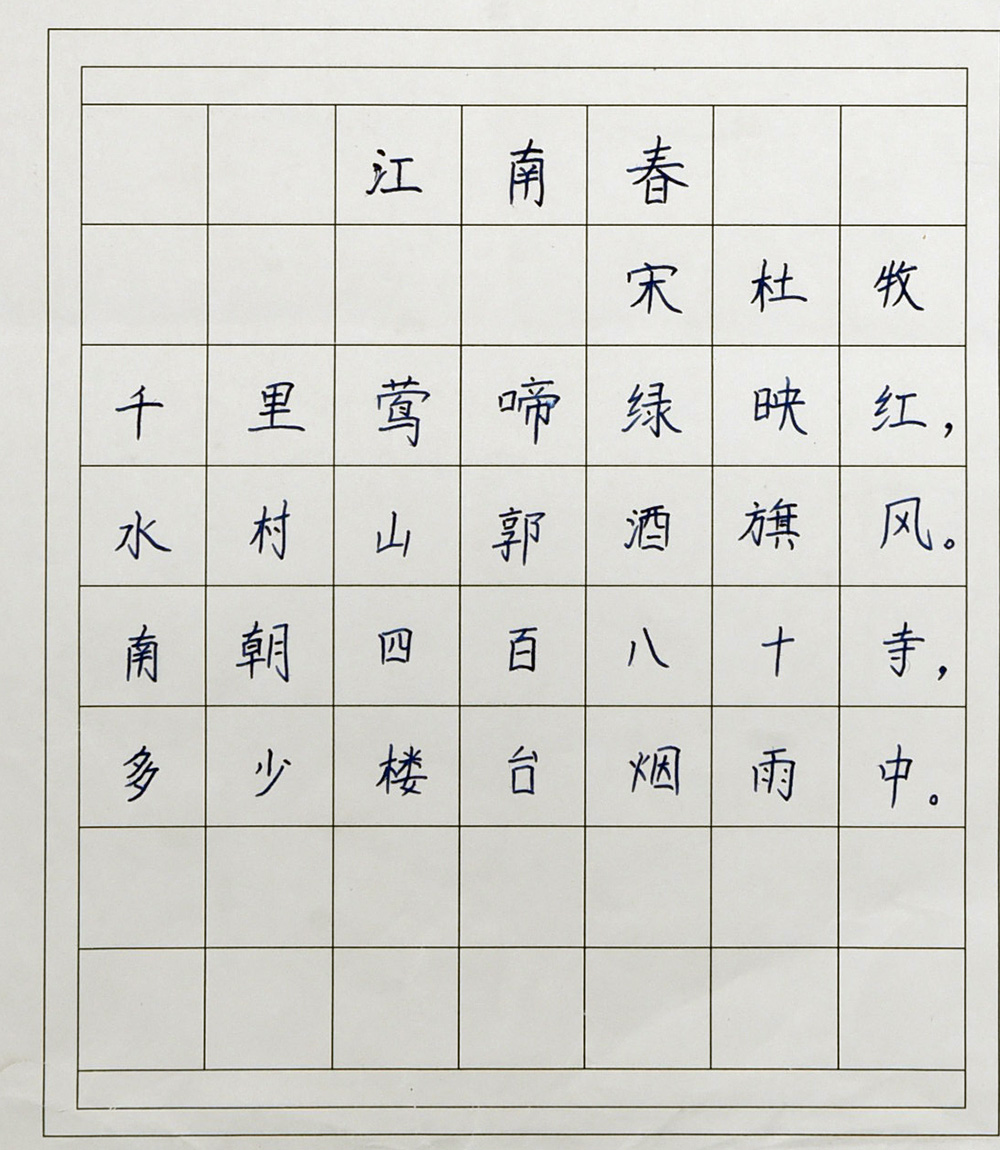 江南春
宋杜牧
千里莺啼绿映红，
水村山郭酒旗风。
南朝四百八十寺，
多少楼台烟雨中。